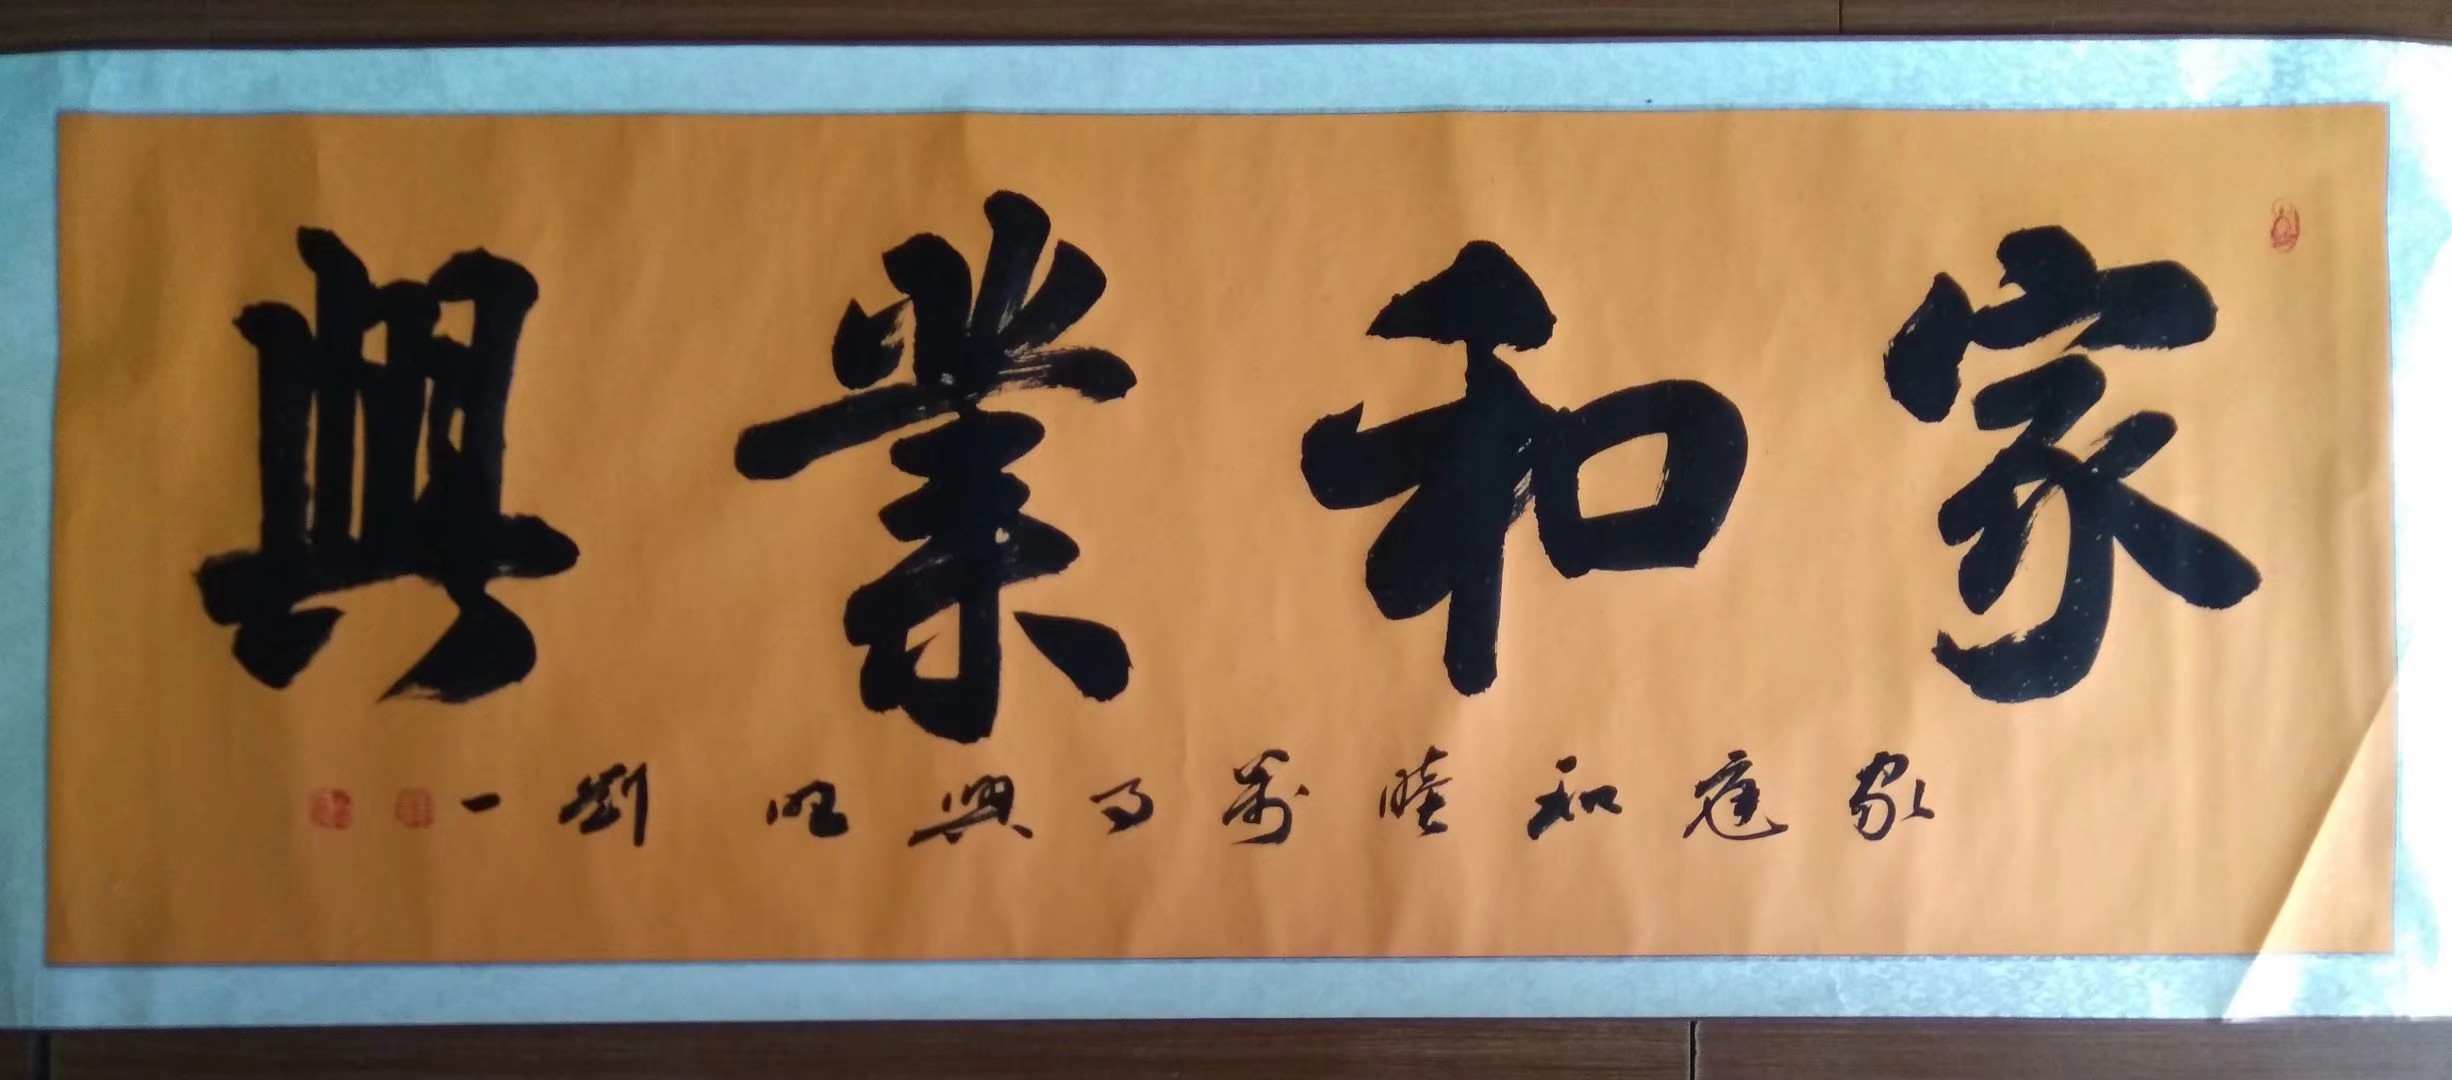 家和業興
家庭和睦萬事興旺 劉一